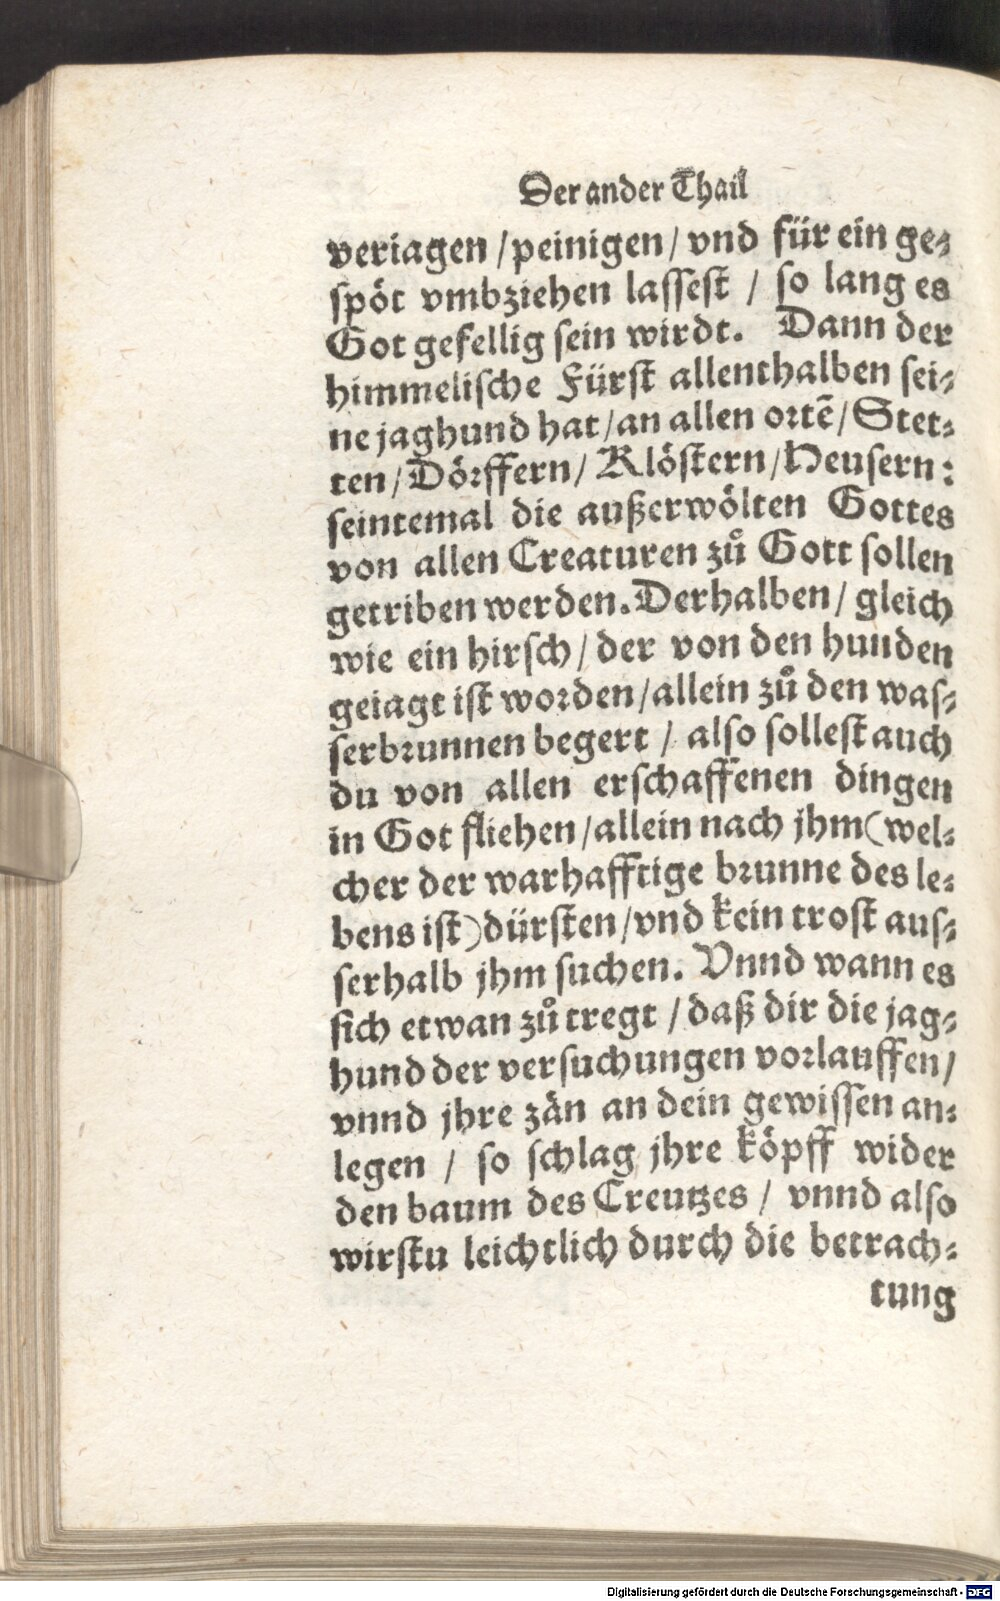 Der ander Thail
veriagen / peinigen / vnd für ein ge-
spöt vmbziehen lassest / so lang es
Got gefellig sein wirdt. Dann der
himmelische Fürst allenthalben sei-
ne jaghund hat / an allen ortẽ / Stet-
ten / Dörffern / Klöstern / Heusern:
seintemal die außerwölten Gottes
von allen Creaturen zů Gott sollen
getriben werden. Derhalben / gleich
wie ein hirsch / der von den hunden
geiagt ist worden / allein zů den was-
serbrunnen begert / also sollest auch
du von allen erschaffenen dingen
in Got fliehen / allein nach jhm (wel-
cher der warhafftige brunne des le-
bens ist) dürsten / vnd kein trost aus-
serhalb jhm suchen. Vnnd wann es
sich etwan zů tregt / daß dir die jag-
hund der versuchungen vorlauffen /
vnnd jhre zän an dein gewissen an-
legen / so schlag jhre köpff wider
den baum des Creutzes / vnnd also
wirstu leichtlich durch die betrach-
tung
Digitalisierung gefördert durch die Deutsche Forschungsgemeinschaft - DFG